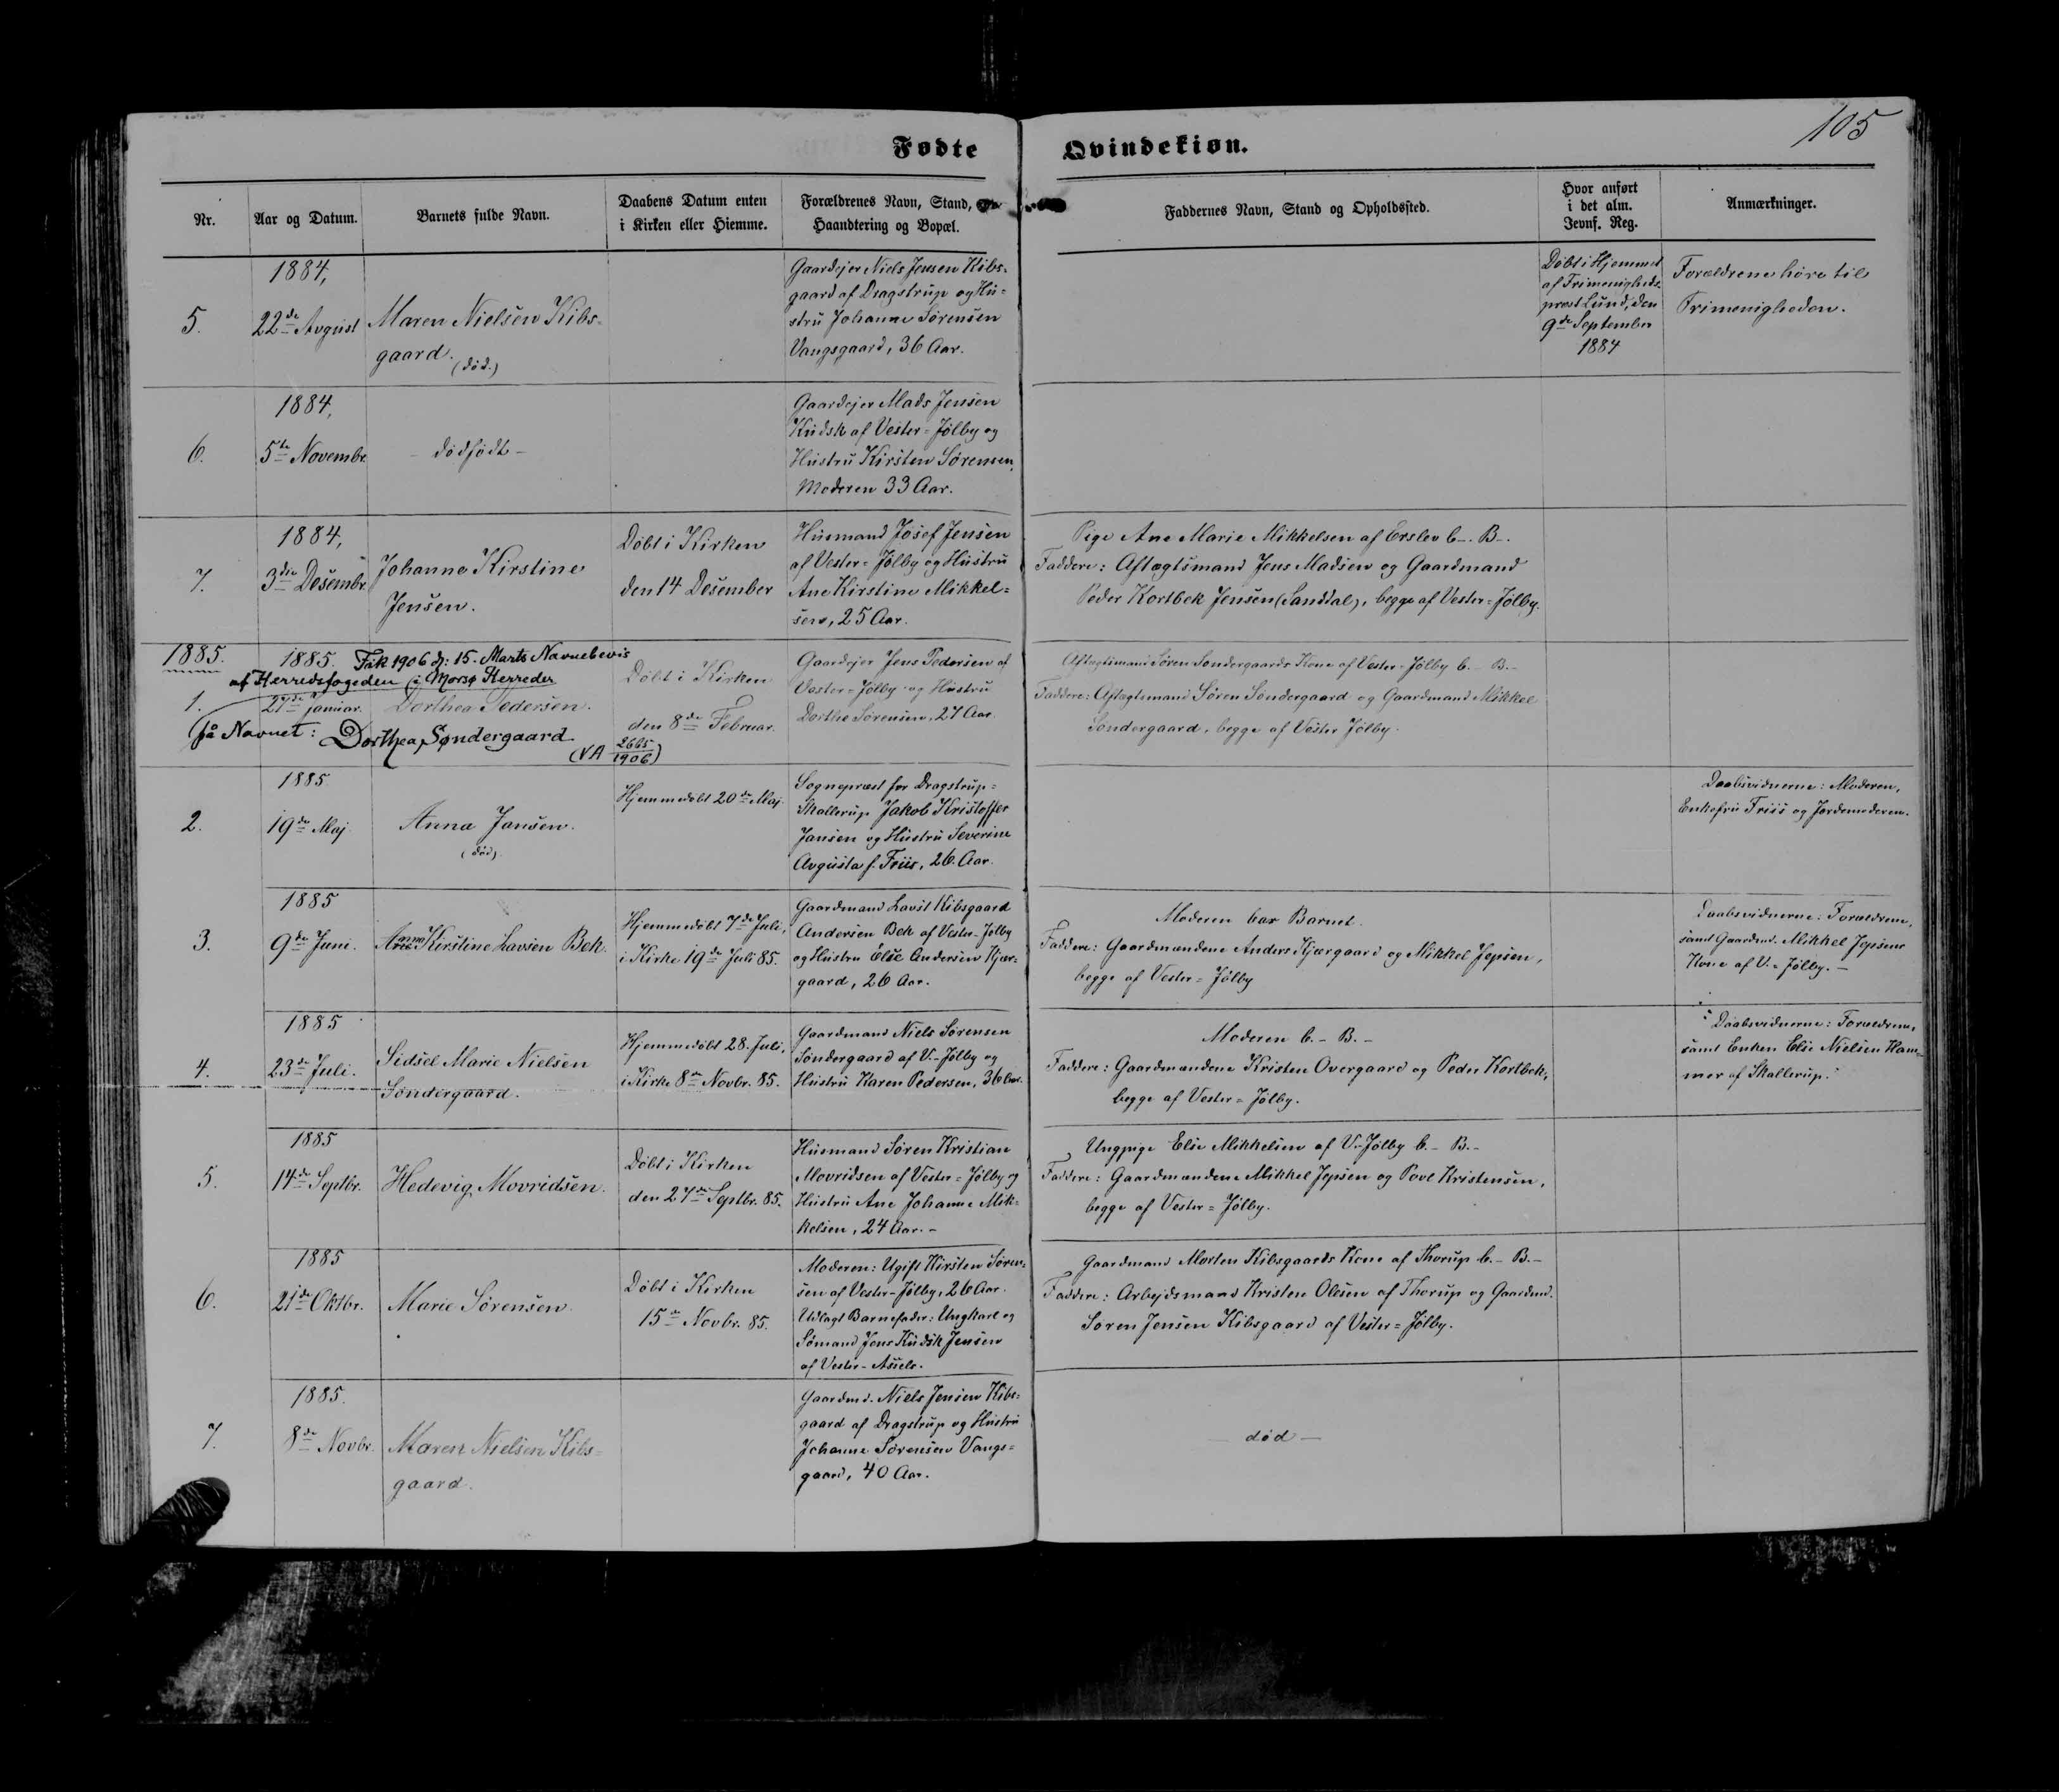 105
Fødte Qvindekiøn.
Nr.
Aar og Datum.
Barnets fulde Navn.
Daabens Datum enten
i Kirken eller Hiemme.
Forældrenes Navn, Stand,
Haandtering og Bopæl.
Faddernes Navn, Stand og Opholdssted.
Hvor anført
i det alm.
Jevnf. Reg.
Anmærkninger.
5.
1884,
22de Avgust
Maren Nielsen Kibs-
gaard.
(død.)
Gaardejer Niels Jensen Kibs-
gaard af Dragstrup og Hu-
stru Johanne Sørensen
Vangsgaard, 36 Aar.
Døbt i Hjemmet
af Frimenigheds-
præst Lund, den
9de September
1884
Forældrene høre til
Frimenigheden.
6.
1884,
5te Novembr.
- dødfødt -
Gaardejer Mads Jensen
Kudsk af Vester=Jølby og
Hustru Kirsten Sørensen,
Moderen 33 Aar.
7.
1884,
3die Desembr.
Johanne Kirstine
Jensen.
Døbt i Kirken
den 14 Desember
Husmand Josef Jensen
af Vester=Jølby og Hustru
Ane Kirstine Mikkel=
sen, 25 Aar.
Pige Ane Marie Mikkelsen af Erslev b-. B-.
Faddere: Aftægtsmand Jens Madsen og Gaardmand
Peder Kortbek Jensen (Sanddal), begge af Vester=Jølby.
1885.
1.
1885.
27de Januar.
Fik 1906 d: 15. Marts Navnebevis
af Herredsfogeden i Morsø Herreder
Dorthea Pedersen.
på Navnet: Dorthea Søndergaard
(VA 2665/1906)
Døbt i Kirken
den 8de Februar.
Gaardejer Jens Pedersen af
Vester=Jølby og Hustru
Dorthe Sørensen, 27 Aar.
Aftægtsmand Søren Søndergaards Kone af Vester=Jølby b. - B.-
Faddere: Aftægtsmand Søren Søndergaard og Gaardmand Mikkel
Søndergaard, begge af Vester Jølby.
2.
1885
19de Maj
Anna Jansen.
(død).
Hjemmedøbt 20de Maj.
Sognepræst for Dragstrup=
Skallerup Jakob Kristoffer
Jansen og Hustru Severine
Avgusta f. Friis, 26 Aar.
Daabsvidnerne: Moderen,
Enkefru Friis og Jordemoderen.
3.
1885
9de Juni.
Anna Kirstine Lavsen Bek.
Hjemmedøbt 7de Juli,
i Kirke 19de Juli 85.
Gaardmand Lavst Kibsgaard
Andersen Bek af Vester-Jølby
og Hustru Else Andersen Kjær-
gaard, 26 Aar.
Moderen bar Barnet.
Faddere: Gaardmændene Anders Kjærgaard og Mikkel Jepsen,
begge af Vester=Jølby
Daabsvidnerne: Forældrene,
samt Gaardmd. Mikkel Jepsens
Kone af V.=Jølby. -
4.
1885
23de Juli.
Sidsel Marie Nielsen
Søndergaard.
Hjemmedøbt 28. Juli,
i Kirke 8de Novbr. 85.
Gaardmand Niels Sørensen
Søndergaard af V.-Jølby og
Hustru Karen Pedersen, 36 Aar.
Moderen b. - B. -
Faddere: Gaardmændene Kristen Overgaard og Peder Kortbek,
begge af Vester=Jølby.
Daabsvidnerne: Forældrene,
samt Enken Else Nielsen Ham-
mer af Skallerup.
5.
1885
14de Septbr.
Hedevig Movridsen.
Døbt i Kirken
den 27de Septbr. 85.
Husmand Søren Kristian
Movridsen af Vester=Jølby og
Hustru Ane Johanne Mik-
kelsen, 24 Aar. -
Ungpige Else Mikkelsen af V-Jølby b.- B.-
Faddere: Gaardmændene Mikkel Jepsen og Povl Kristensen,
begge af Vester=Jølby.
6.
1885
21de Oktbr.
Marie Sørensen
Døbt i Kirken
15de Novbr. 85.
Moderen: Ugift Kirsten Søren-
sen af Vester-Jølby, 26 Aar.
Udlagt Barnefader: Ungkarl og
Sømand Jens Kudsk Jensen
af Vester-Assels.
Gaardmand Morten Kibsgaards Kone af Thorup b.- B.-
Faddere: Arbejdsmand Kristen Olesen af Thorup og Gaardmd.
Søren Jensen Kibsgaard af Vester=Jølby.
7.
1885.
8de Novbr.
Maren Nielsen Kibs-
gaard.
Gaardmd. Niels Jensen Kibs-
gaard af Dragstrup og Hustru
Johanne Sørensen Vangs=
gaard, 40 Aar.
- død -